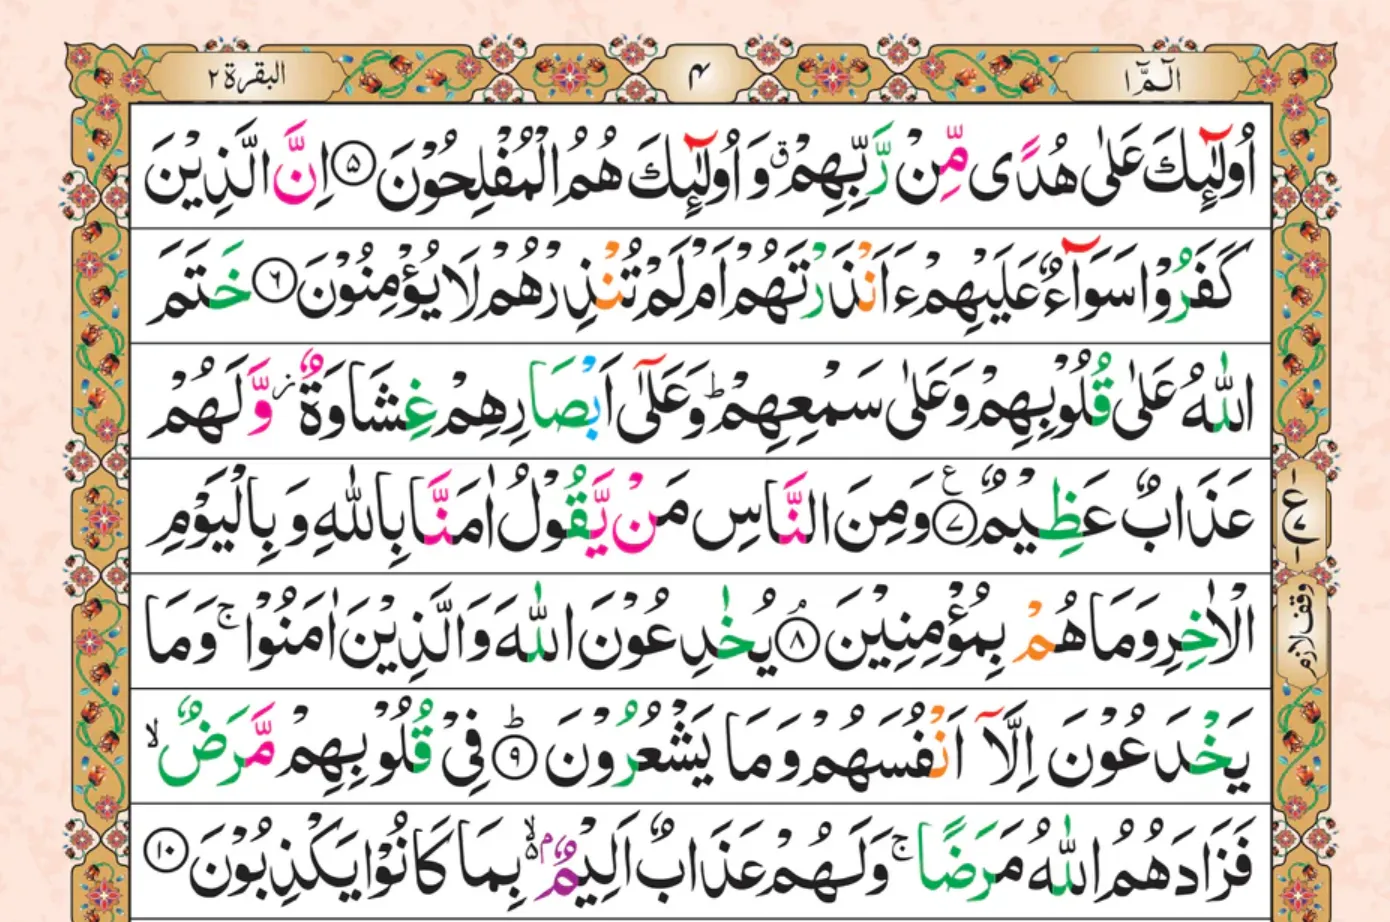 الٓمّٓ ١
۴
البقرة ٢
اُولٰٓئِكَ عَلٰى هُدًى مِّنْ رَّبِّهِمْ ۗ وَ اُولٰٓئِكَ هُمُ الْمُفْلِحُوْنَ ۵ اِنَّ الَّذِيْنَ
كَفَرُوْا سَوَآءٌ عَلَيْهِمْ ءَاَنْذَرْتَهُمْ اَمْ لَمْ تُنْذِرْهُمْ لَا يُؤْمِنُوْنَ ۶ خَتَمَ
اللّٰهُ عَلٰى قُلُوْبِهِمْ وَعَلٰى سَمْعِهِمْ ؕ وَعَلٰٓى اَبْصَارِهِمْ غِشَاوَةٌ ز وَّلَهُمْ
عَذَابٌ عَظِيْمٌ ۷ ع وَمِنَ النَّاسِ مَنْ يَّقُوْلُ اٰمَنَّا بِاللّٰهِ وَ بِالْيَوْمِ
الْاٰخِرِ وَمَا هُمْ بِمُؤْمِنِيْنَ ۘ ۸ يُخٰدِعُوْنَ اللّٰهَ وَالَّذِيْنَ اٰمَنُوْا ۚ وَمَا
يَخْدَعُوْنَ اِلَّاۤ اَنْفُسَهُمْ وَمَا يَشْعُرُوْنَ ؕ ۹ فِيْ قُلُوْبِهِمْ مَّرَضٌ ۙ
فَزَادَهُمُ اللّٰهُ مَرَضًا ۚ وَلَهُمْ عَذَابٌ اَلِيْمٌۢ ۙ۵ بِمَا كَانُوْا يَكْذِبُوْنَ ۱۰
ع
وقف لازم